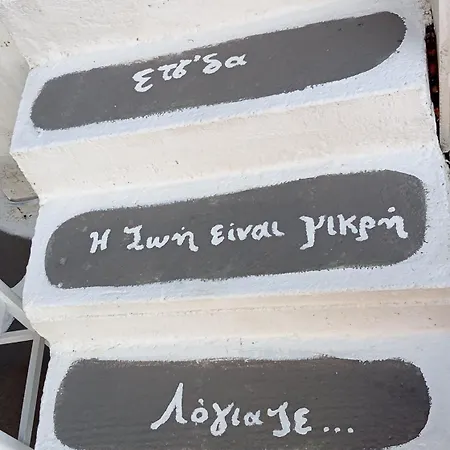 Ετσ'δα
Η Ζωή είναι μικρή
Λόγιαζε...